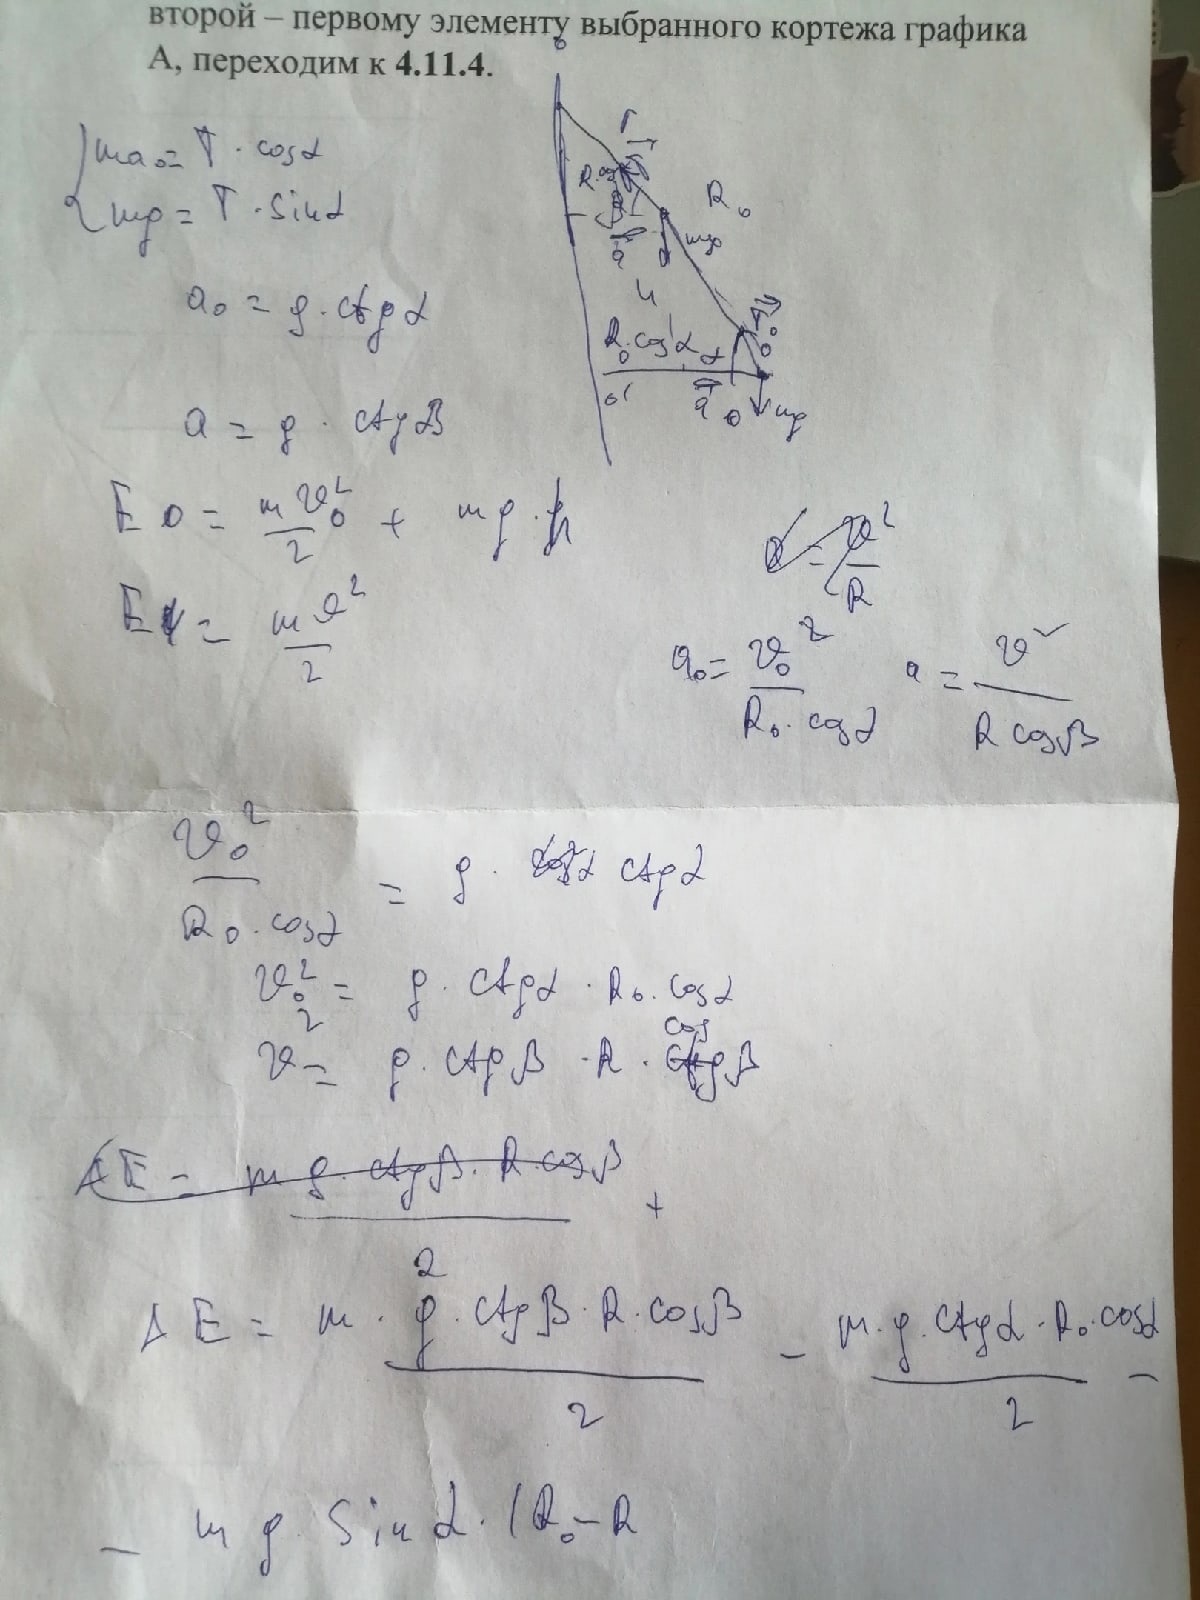 второй – первому элементу выбранного кортежа графика
А, переходим к 4.11.4.
ma₀ = T · cosα
mg = T · sinα
a₀ = g · ctgα
a = g · ctgβ
R₀
mg
R₀ · cosα
mg
E₀ = mv₀²/2 + mg · h
E = mv²/2
a₀ = v₀²/(R₀ · cosα)
a = v²/(R cosβ)
v₀²/(R₀ · cosα) = g · ctgα
v₀² = g · ctgα · R₀ · cosα
v² = g · ctgβ · R · cosβ
ΔE = m g · ctgβ · R cosβ / 2 +
ΔE = m · g · ctgβ · R · cosβ / 2 − m · g · ctgα · R₀ · cosα / 2 −
− m g · sinα · (R₀ − R